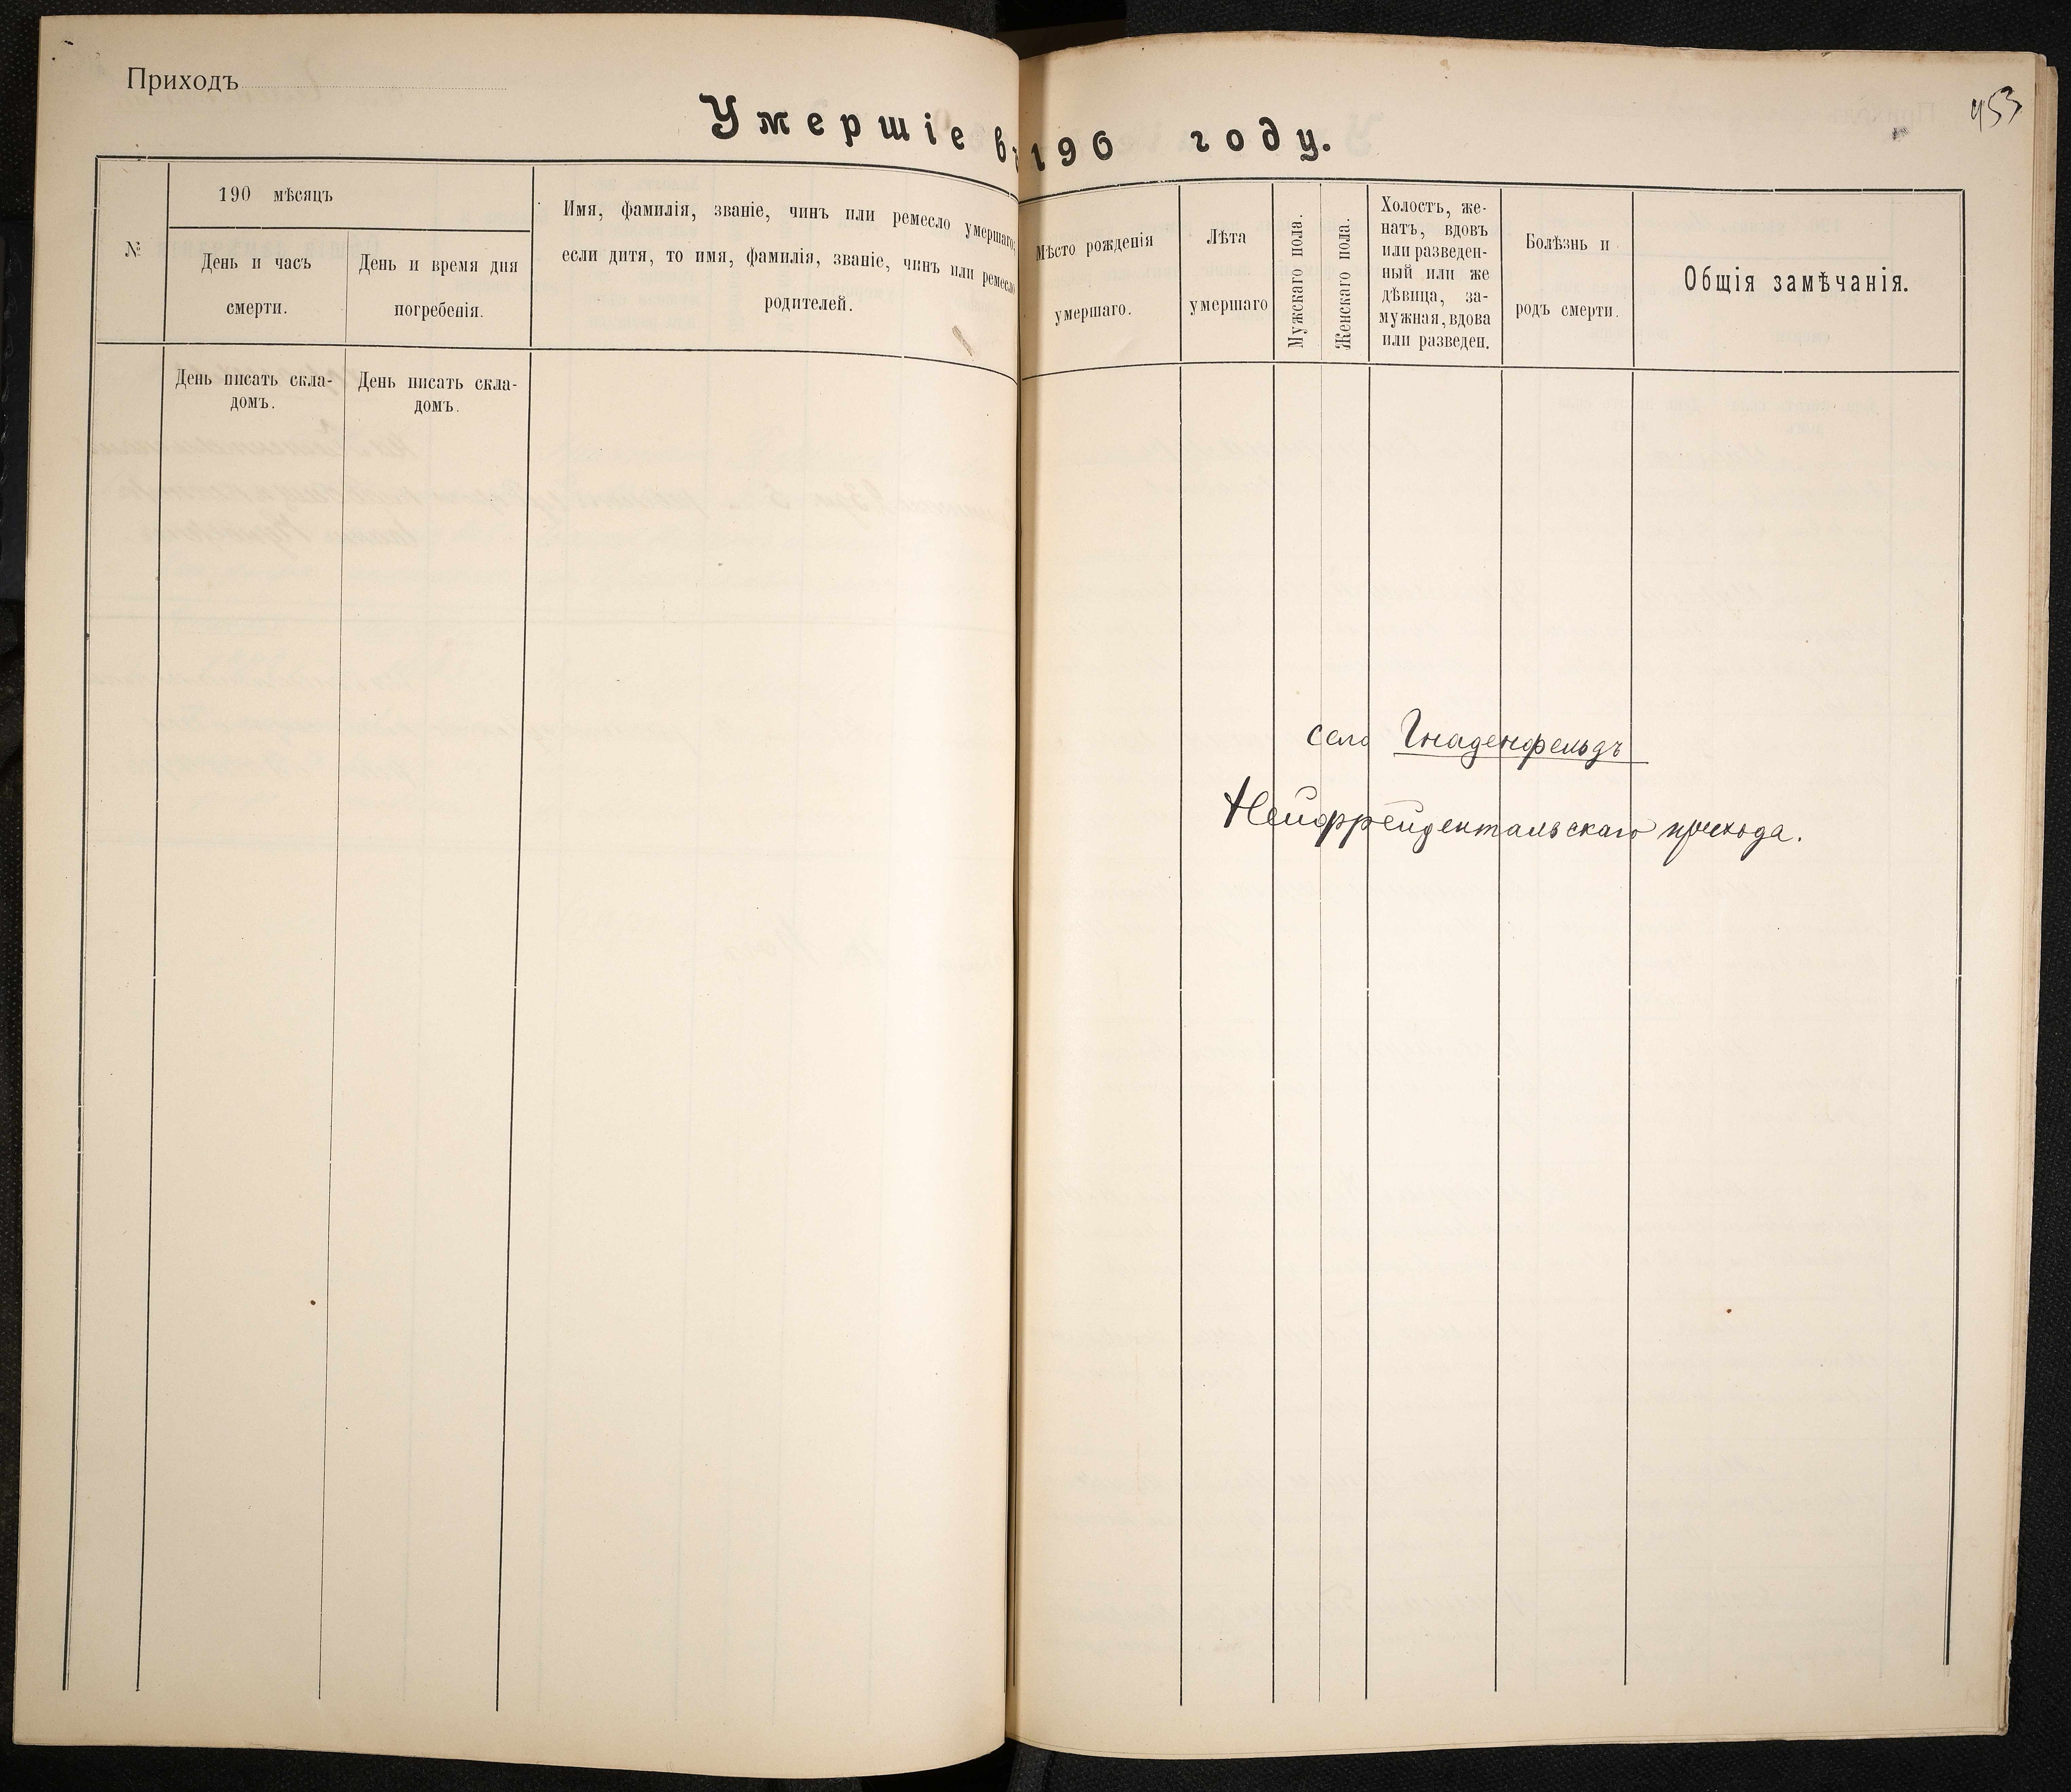 Приходъ
453
Умершіе въ 190 году.
№
190 мѣсяцъ
День и часъ
смерти.
День и время дня
погребенія.
Имя, фамилія, званіе, чинъ или ремесло умершаго;
если дитя, то имя, фамилія, званіе, чинъ или ремесло
родителей.
Мѣсто рожденія
умершаго.
Лѣта
умершаго
Мужскаго пола.
Женскаго пола.
Холостъ, же-
натъ, вдовъ
или разведен-
ный или же
дѣвица, за-
мужная, вдова
или разведен.
Болѣзнь и
родъ смерти.
Общія замѣчанія.
День писать скла-
домъ.
День писать скла-
домъ.
село Гнаденфельдъ
Нейффрейдентальскаго прихода.